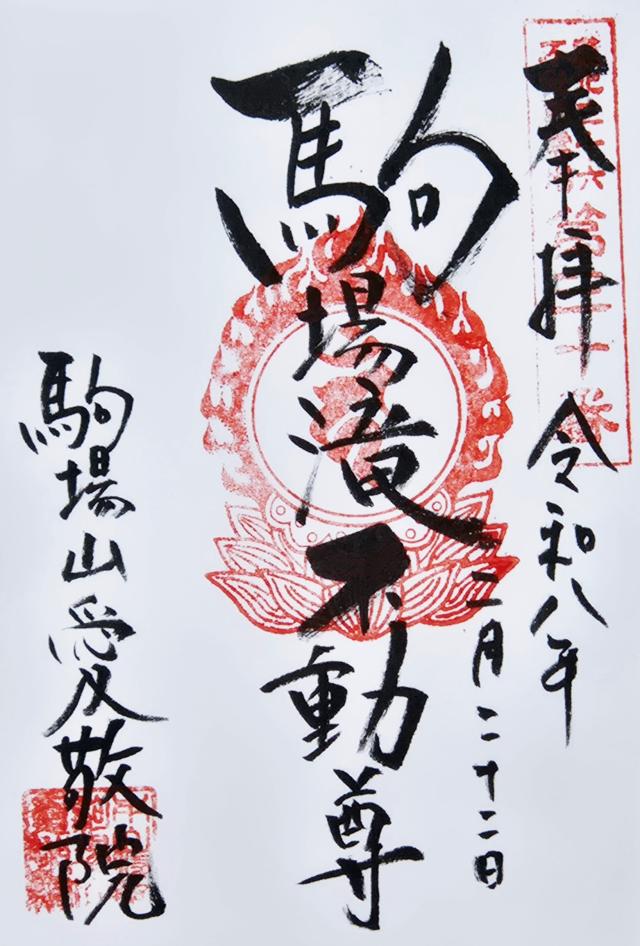 奉拝
令和八年
二月二十二日
駒場滝不動尊
駒場山愛敬院